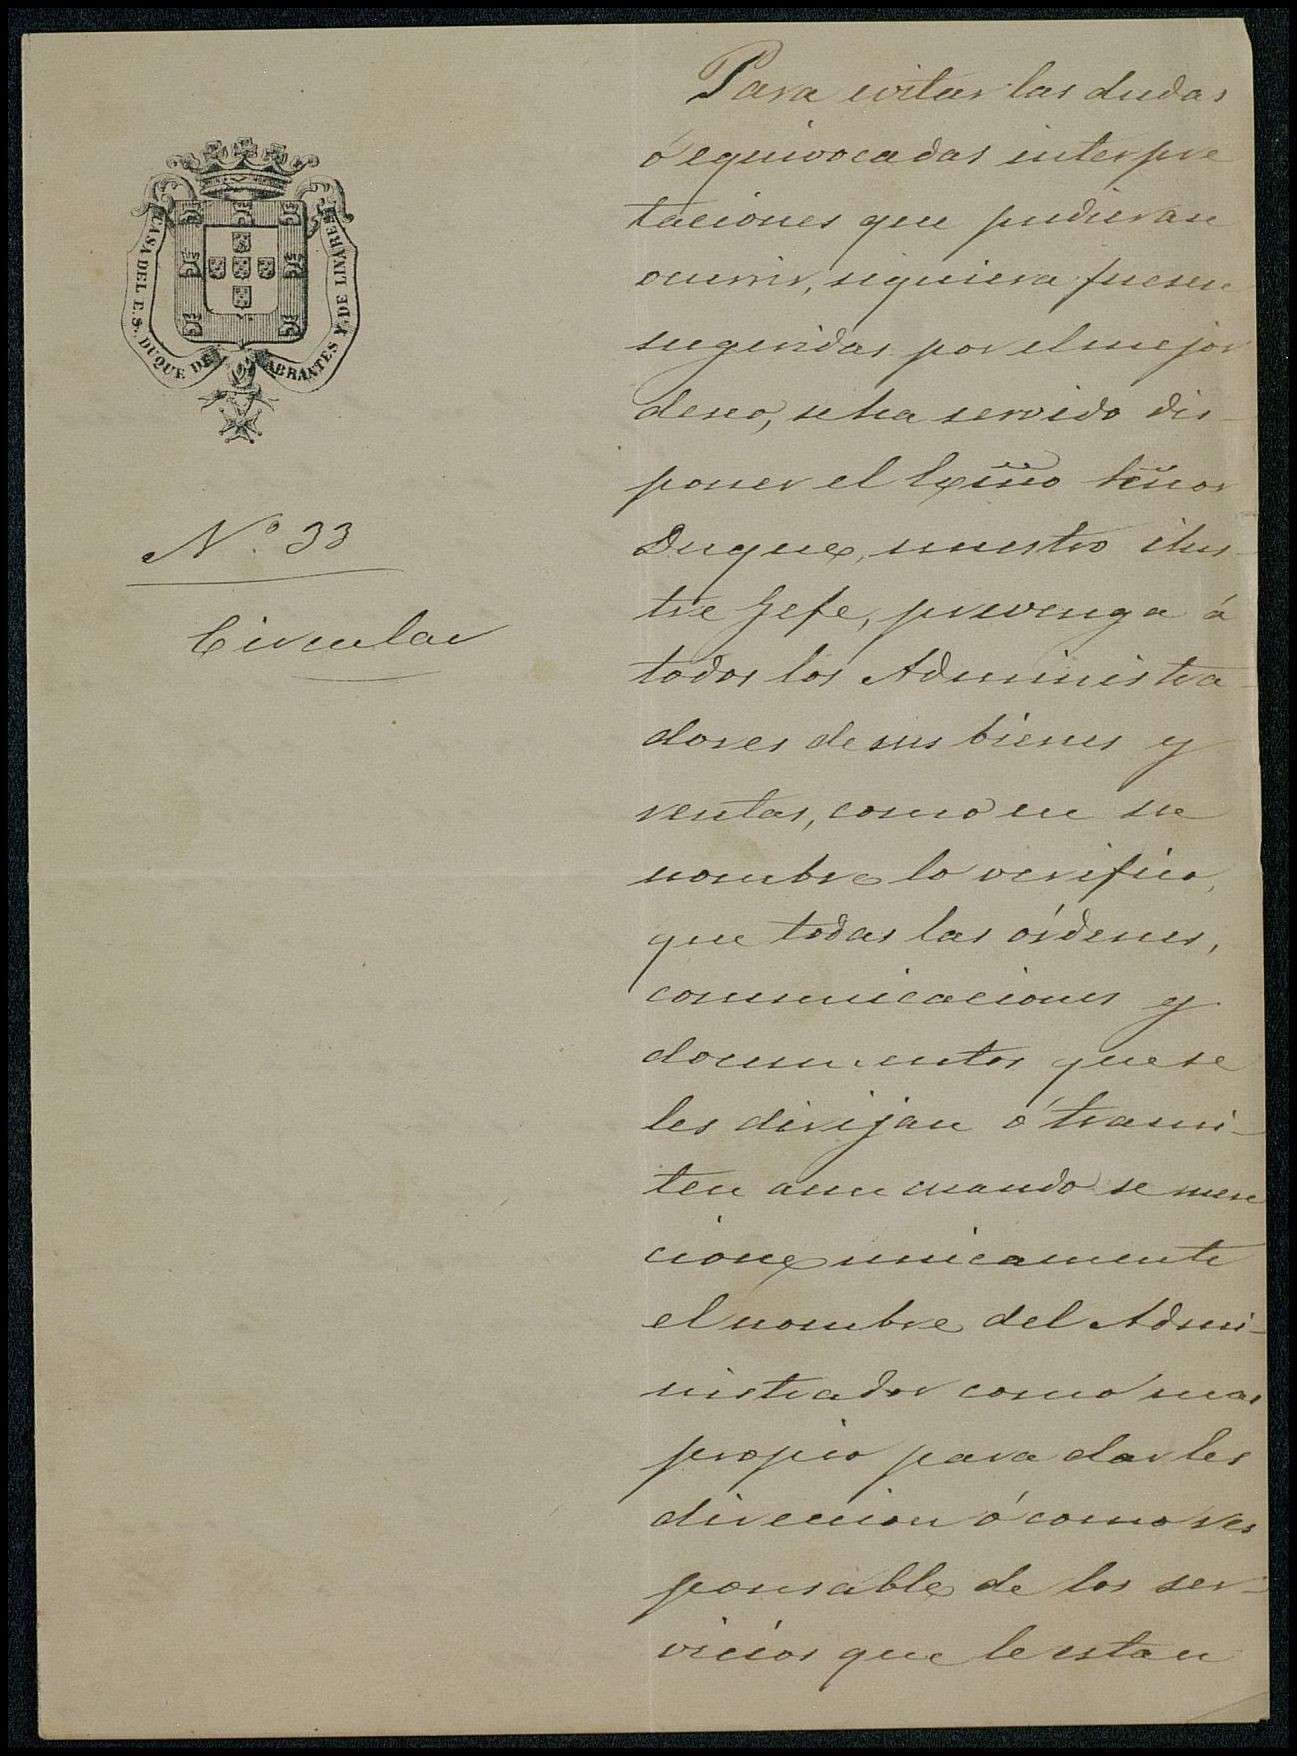 CASA DEL E.S. DUQUE DE ABRANTES Y DE LINARES
N.º 33
Circular
Para evitar las dudas
ó equivocadas interpre
taciones que pudieran
ocurrir, siquiera fuesen
sugeridas por el mejor
deseo, se ha servido dis-
poner el Exmo Señor
Duque, nuestro ilus-
tre Jefe, prevenga á
todos los Administra-
dores de sus bienes y
rentas, como en su
nombre lo verifico,
que todas las órdenes,
comunicaciones y
documentos que se
les dirijan ó trami-
ten aun cuando se men
cione unicamente
el nombre del Admi-
nistrador como mas
propio para darles
direccion ó como res
ponsable de los ser-
vicios que le estan